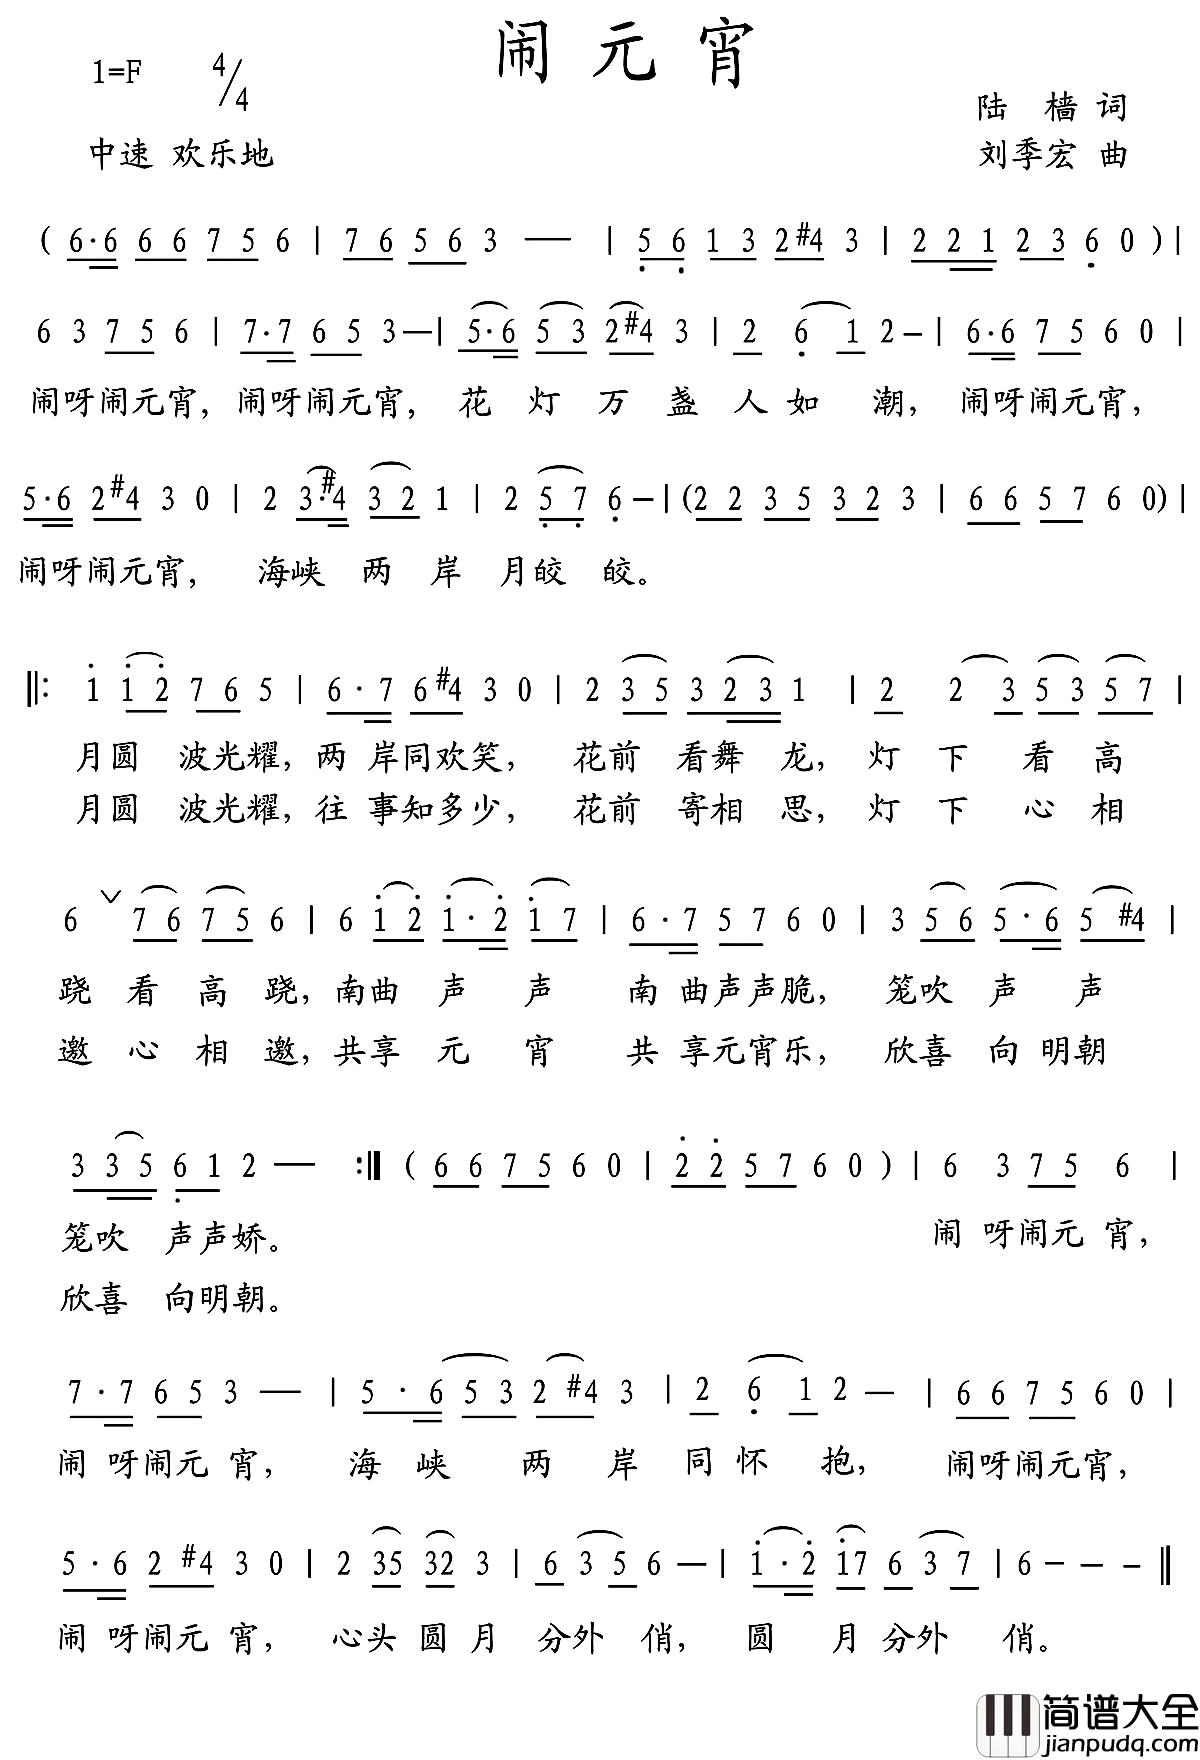 闹元宵
1=F 4/4
陆 樯 词
中速 欢乐地
刘季宏 曲
( 6·6 6 6 7 5 6 | 7 6 5 6 3 — | 5 6 1 3 2 #4 3 | 2 2 1 2 3 6 0 ) |
6 3 7 5 6 | 7·7 6 5 3 — | 5·6 5 3 2 #4 3 | 2 6 1 2 – | 6·6 7 5 6 0 |
闹呀闹元宵, 闹呀闹元宵, 花 灯 万 盏 人 如 潮, 闹呀闹元宵,
5·6 2 #4 3 0 | 2 3·#4 3 2 1 | 2 5 7 6 – | (2 2 3 5 3 2 3 | 6 6 5 7 6 0) |
闹呀闹元宵, 海峡 两 岸 月皎 皎。
‖: 1 1 2 7 6 5 | 6·7 6 #4 3 0 | 2 3 5 3 2 3 1 | 2 2 3 5 3 5 7 |
月圆 波光耀, 两 岸同欢笑, 花前 看舞 龙, 灯 下 看 高
月圆 波光耀, 往 事知多少, 花前 寄相 思, 灯 下 心 相
6 ∨ 7 6 7 5 6 | 6 1 2 1·2 1 7 | 6·7 5 7 6 0 | 3 5 6 5·6 5 #4 |
跷 看 高 跷, 南曲 声 声 南 曲声声脆, 笼吹 声 声
邀 心 相 邀, 共享 元 宵 共 享元宵乐, 欣喜 向 明朝
3 3 5 6 1 2 — :‖ ( 6 6 7 5 6 0 | 2 2 5 7 6 0 ) | 6 3 7 5 6 |
笼吹 声声娇。 闹 呀闹元 宵,
欣喜 向明朝。
7·7 6 5 3 — | 5·6 5 3 2 #4 3 | 2 6 1 2 — | 6 6 7 5 6 0 |
闹 呀闹元 宵, 海 峡 两 岸 同 怀 抱, 闹呀闹元宵,
5·6 2 #4 3 0 | 2 35 32 3 | 6 3 5 6 — | 1·2 17 6 3 7 | 6 – – – ‖
闹 呀闹元 宵, 心头 圆 月 分外 俏, 圆 月 分外 俏。
简谱大全
jianpudq.com